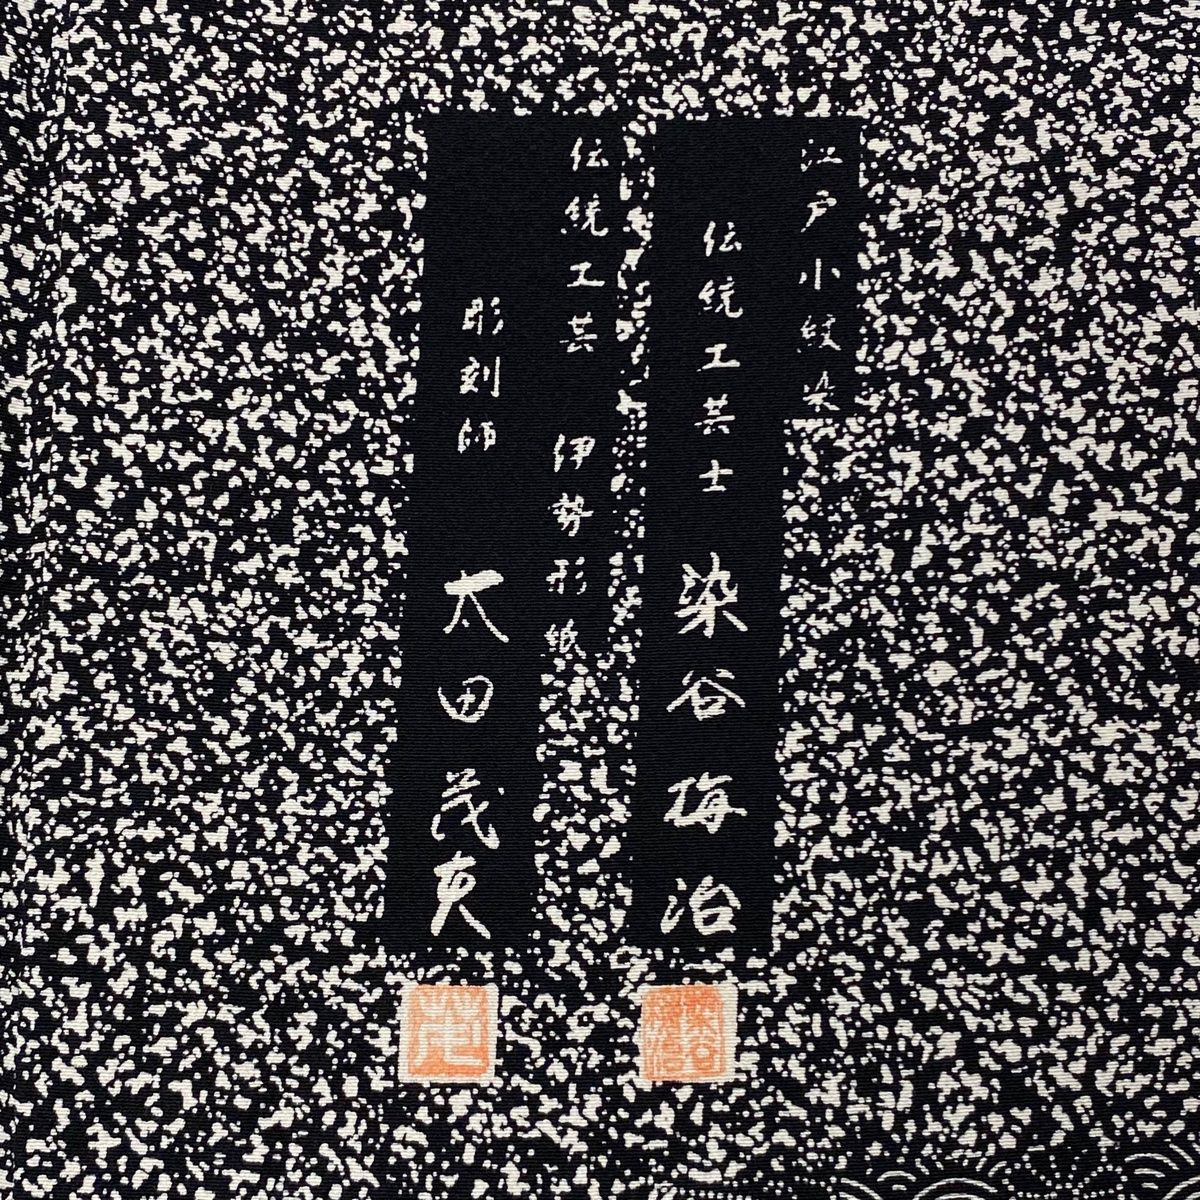 江戸小紋染
伝統工芸士 染谷梅治
伝統工芸 伊勢形紙
彫刻師 太田茂夫
染谷梅治